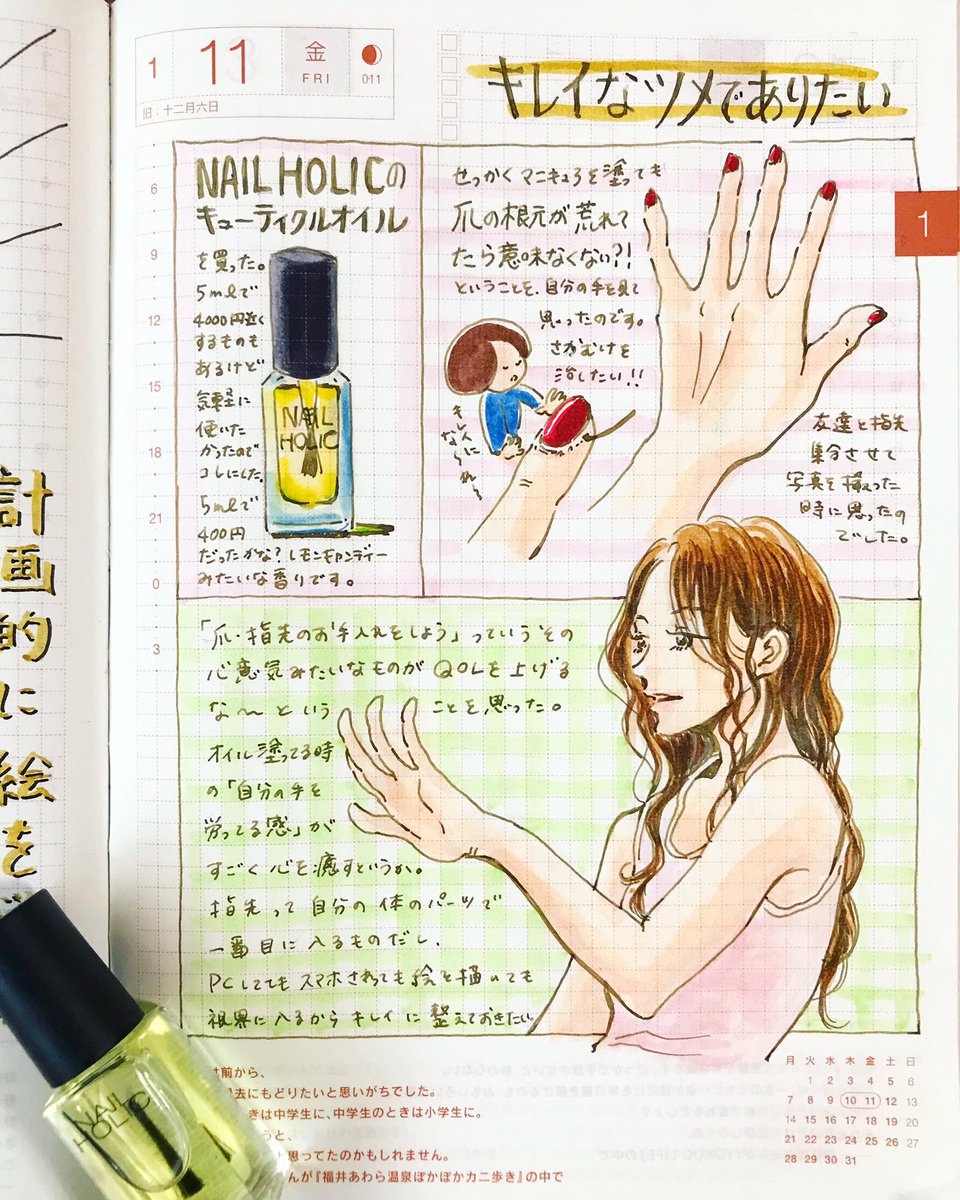 1
11
金
FRI
011
旧:十二月六日
キレイなツメでありたい
1
NAIL HOLICの
キューティクルオイル
を買った。
5mlで
4000円近く
するものも
あるけど
気軽に
使いた
かったので
コレにした。
5mlで
400円
だったかな?レモンキャンディー
みたいな香りです。
NAIL
HOLIC
せっかくマニキュアを塗っても
爪の根元が荒れて
たら意味なくない?!
ということを、自分の手を見て
思ったのです。
さかむけを
治したい!!
キレイに
なーれー
友達と指先
集合させて
写真を撮った
時に思ったの
でした。
「爪・指先のお手入れをしよう」っていうその
心意気みたいなものがQOLを上げる
な〜ということを思った。
オイル塗ってる時
の「自分の手を
労ってる感」が
すごく心を癒すというか。
指先って自分の体のパーツで
一番目に入るものだし、
PCしててもスマホさわっても絵を描いても
視界に入るからキレイに整えておきたい
6
9
12
15
18
21
0
3
計画的に絵を
NAIL
HOLIC
前から、
過去にもどりたいと思いがちでした。
きは中学生に、中学生のときは小学生に。
うと、
と思ってたのかもしれません。
んが『福井あわら温泉ぽかぽかカニ歩き』の中で
月 火 水 木 金 土 日
1 2 3 4 5 6
7 8 9 10 11 12 13
14 15 16 17 18 19 20
21 22 23 24 25 26 27
28 29 30 31